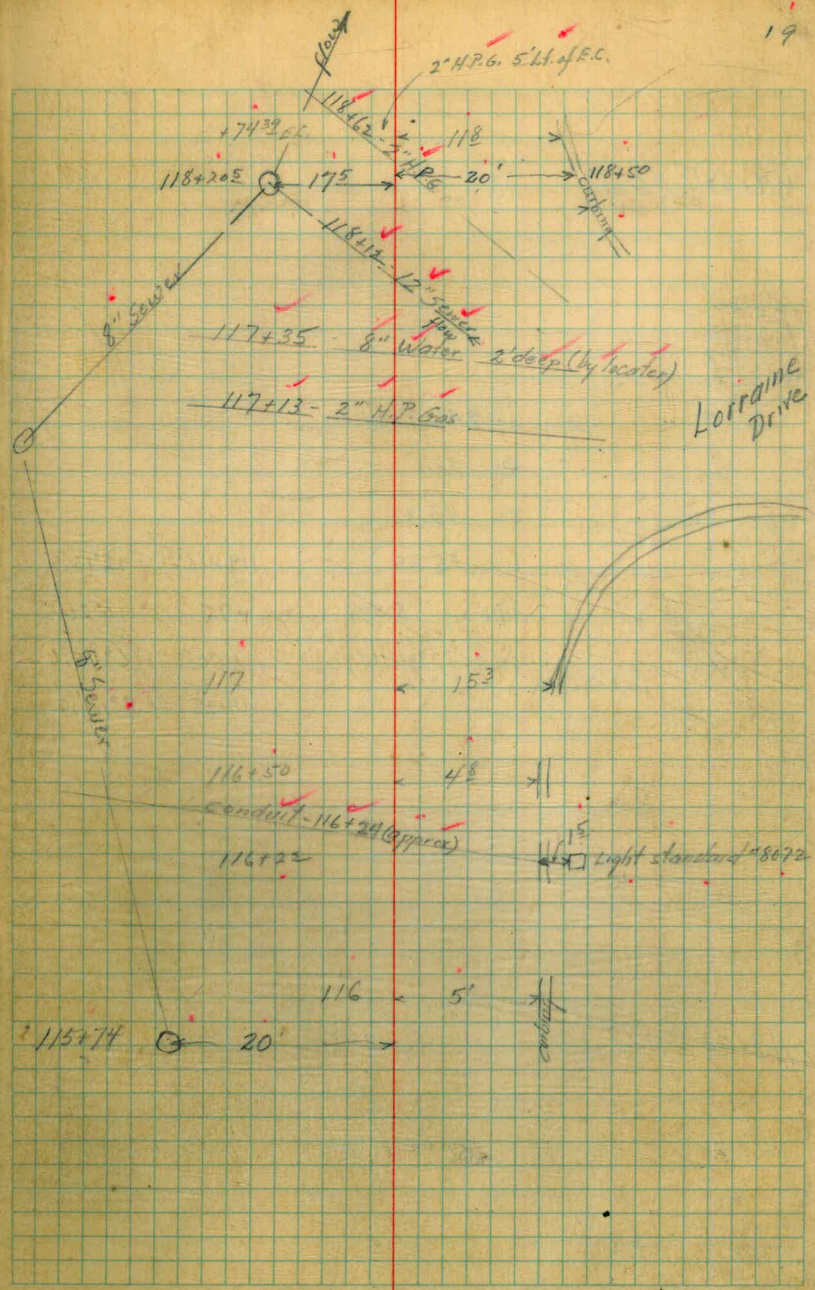 19
flow
2" H.P.G. 5' Lt. of E.C.
118+62 - 2" H.P.G.
+74³⁹ E.C.
11⁸
118+20⁵
17⁵
20'
118+50
curbing
118+12 - 12" Sewer
flow
8" Sewer
117+35 - 8" Water - 2' deep (by locater)
117+13 - 2" H.P. Gas
Lorraine
Drive
8" Sewer
117
15³
116+50
4⁸
conduit - 116+24 (approx)
116+22
1⁵
Light standard #8072
116
5'
curbing
115+74
20